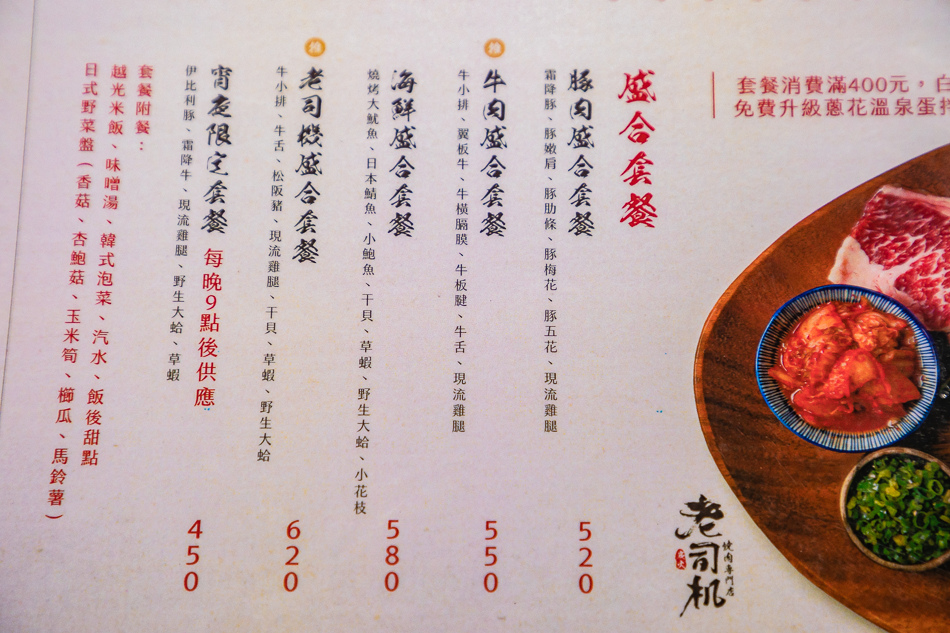 套餐消費滿400元，白
免費升級蔥花溫泉蛋拌
盛合套餐
豚肉盛合套餐
霜降豚、豚嫩肩、豚肋條、豚梅花、豚五花、現流雞腿
520
推
牛肉盛合套餐
牛小排、翼板牛、牛橫膈膜、牛板腱、牛舌、現流雞腿
550
海鮮盛合套餐
燒烤大魷魚、日本鯖魚、小鮑魚、干貝、草蝦、野生大蛤、小花枝
580
推
老司機盛合套餐
牛小排、牛舌、松阪豬、現流雞腿、干貝、草蝦、野生大蛤
620
宵夜限定套餐 每晚9點後供應
伊比利豚、霜降牛、現流雞腿、野生大蛤、草蝦
450
套餐附餐：
越光米飯、味噌湯、韓式泡菜、汽水、飯後甜點
日式野菜盤（香菇、杏鮑菇、玉米筍、櫛瓜、馬鈴薯）
老司机
燒肉專門店